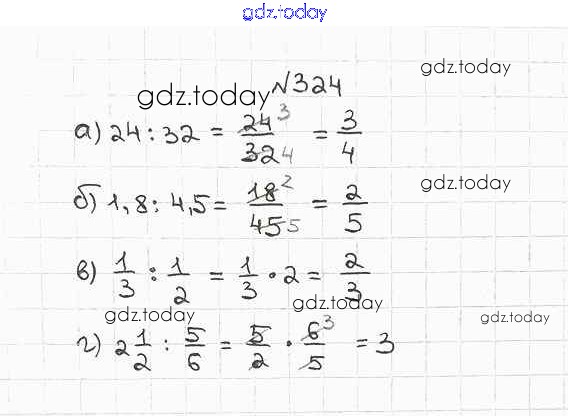 gdz.today
gdz.today
gdz.today №324
а) 24 : 32 = 24/32 3 4 = 3/4
gdz.today
б) 1,8 : 4,5 = 18/45 2 5 = 2/5
в) 1/3 : 1/2 = 1/3 · 2 = 2/3
gdz.today gdz.today gdz.today
г) 2 1/2 : 5/6 = 5/2 · 6/5 3 = 3